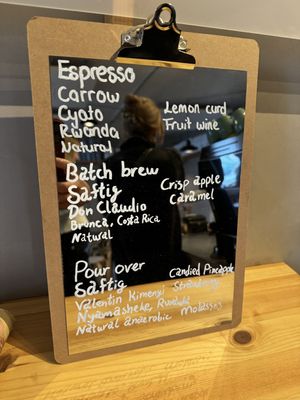 Espresso
Carrow
Cyato
Rwanda
Natural
Lemon curd
Fruit wine
Batch brew
Saftig
Don Claudio
Brunca, Costa Rica
Natural
Crisp apple
Caramel
Pour over
Saftig
Valentin Kimenyi
Nyamasheke, Rwanda
Natural anaerobic
Candied Pineapple
Strawberry
Molasses